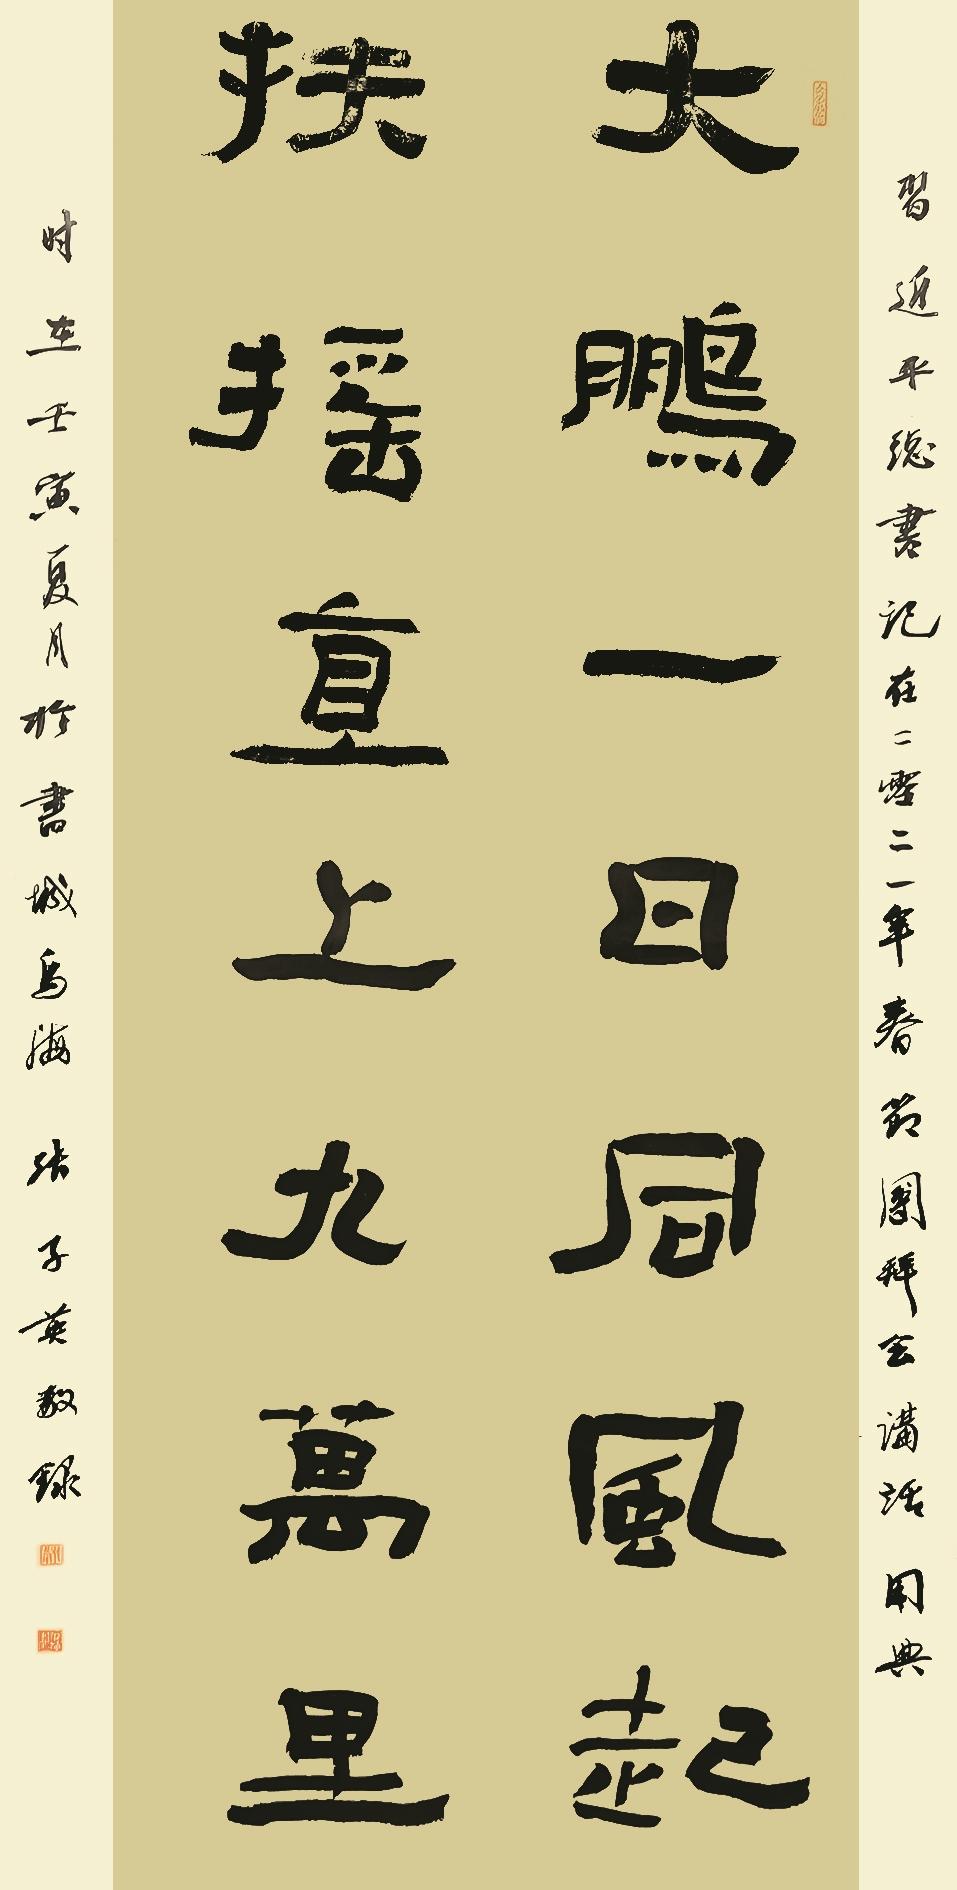 習近平總書记在二零二一年春節團拜会講话 用典
大鹏一日同風起
扶摇直上九萬里
时在壬寅夏月於書城烏海 张子英敬録